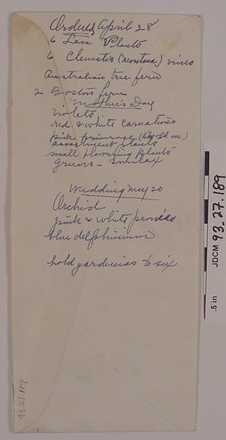 Ordered, April 28
6 Fern Plants
6 Clematis (montana) vines
Australian tree fern
2 Boston fern
Mother's Day
violets
red & white carnations
pink primrose
assortment plants
small flowering plants
greens - smilax
Wedding May 20
Orchid
pink & white peonies
blue delphinium
hold gardenias to six
.5 in
JDCM 93.27.189